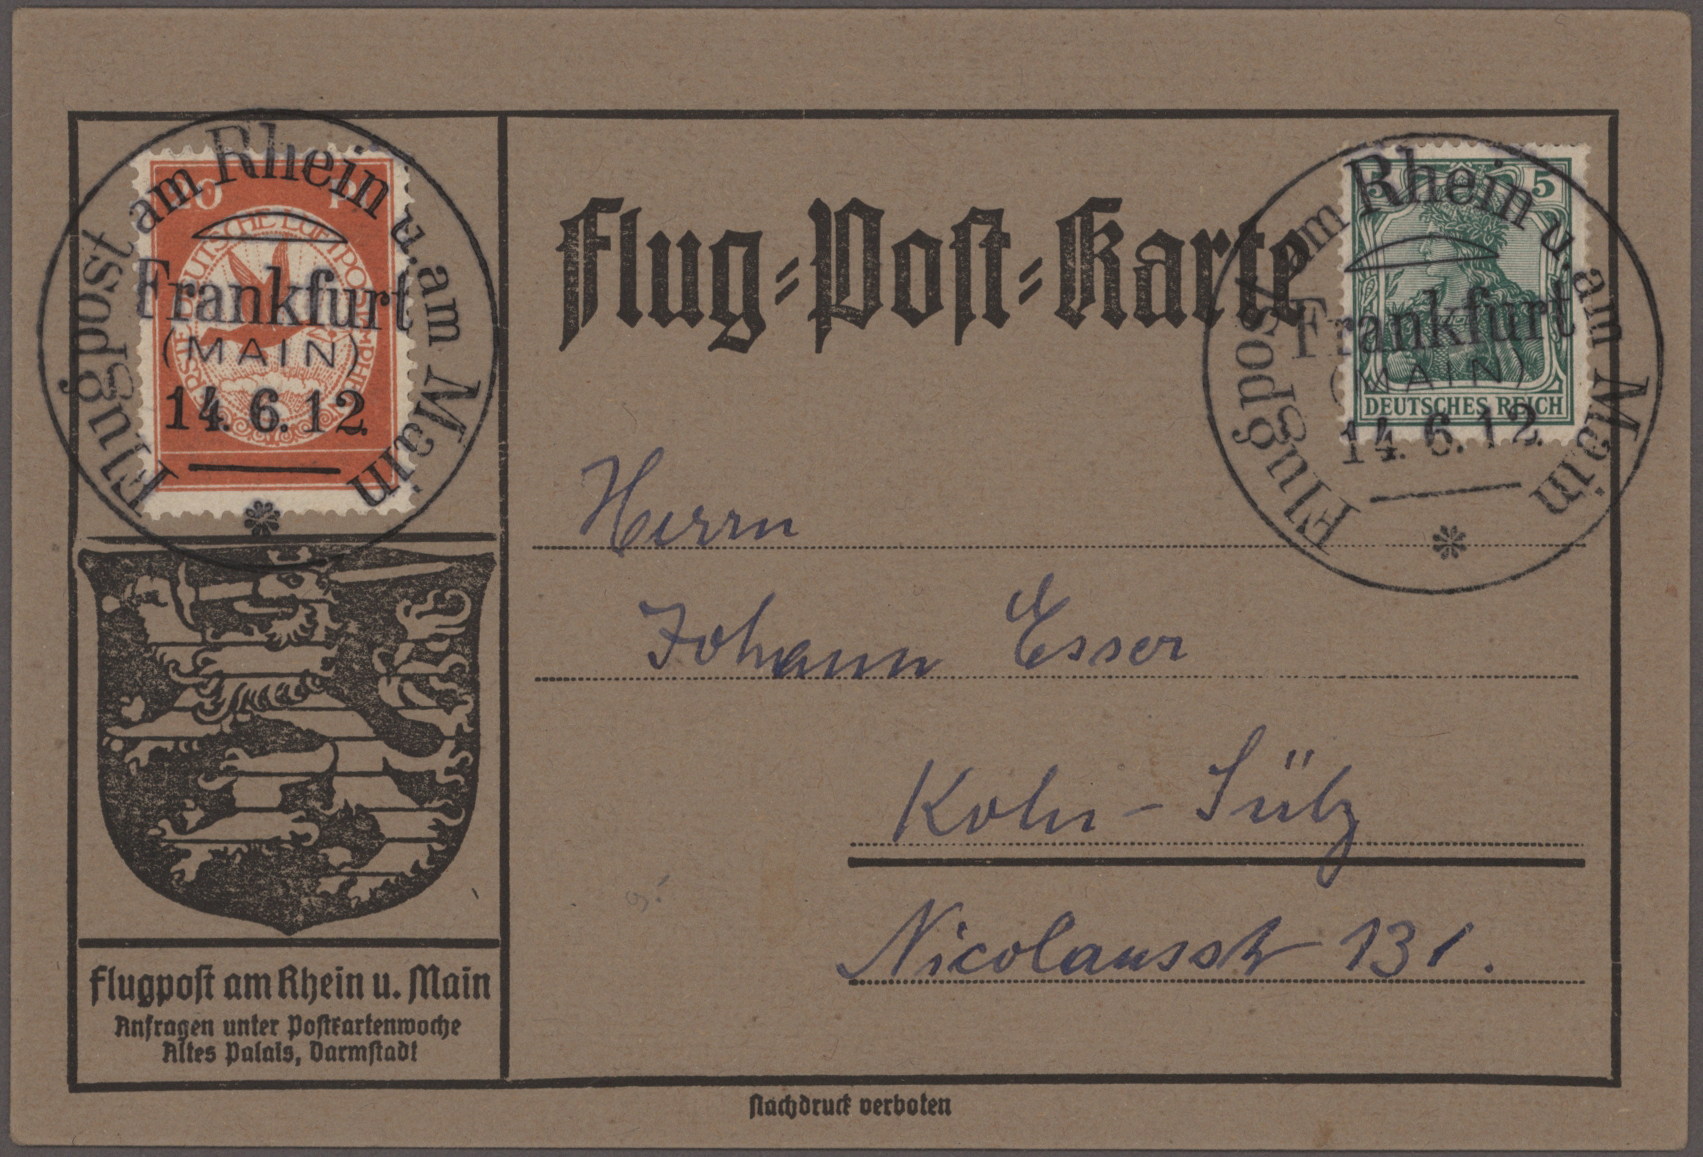 Flugpost am Rhein u. am Main
Frankfurt
(MAIN)
14.6.12
Flug-Post-Karte
5
DEUTSCHES REICH
Flugpost am Rhein u. am Main
Frankfurt
(MAIN)
14.6.12
Herrn
Johann Esser
Köln-Sülz
Nicolausstr 131.
Flugpost am Rhein u. Main
Anfragen unter Postkartenwoche
Altes Palais, Darmstadt
Nachdruck verboten